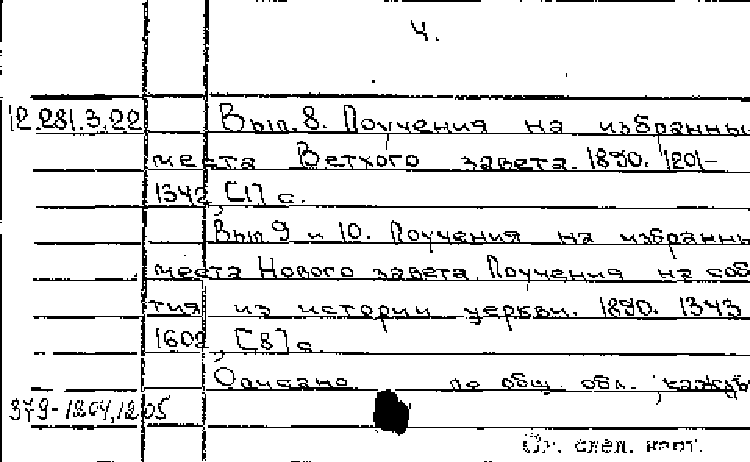 4.
12.281.3.22 Вып. 8. Поучения на избранны
места Ветхого завета. 1890. 1201-
1342, [1] с.
Вып. 9 и 10. Поучения на избранны
места Нового завета. Поучения на соб
тия из истории церкви. 1890. 1343
1602, [8] с.
Описано по общ. обл. каждый
379-1204,1205
См. след. карт.